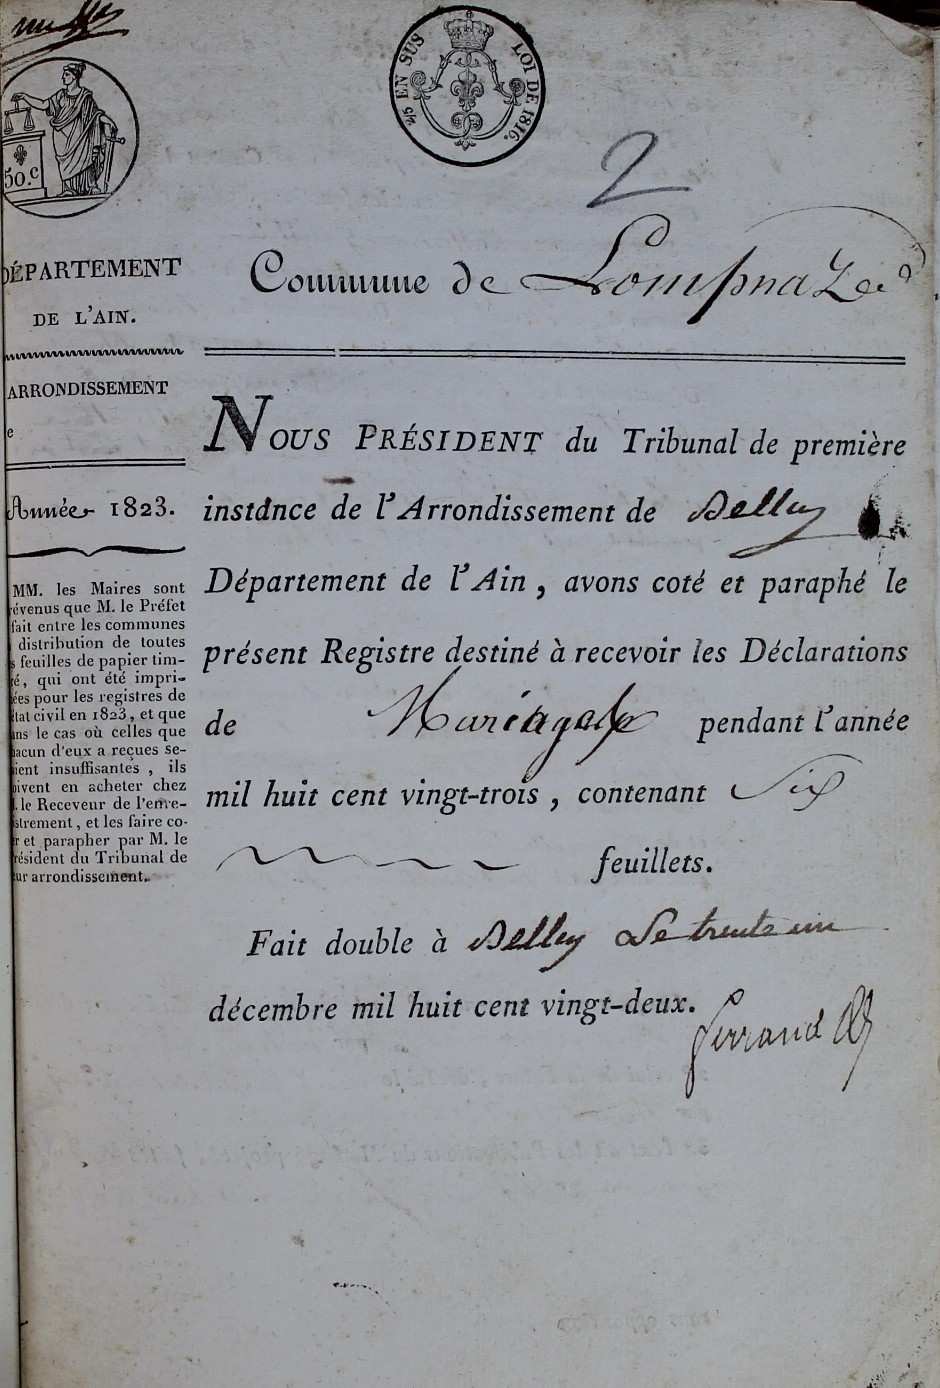 2/5 EN SUS LOI DE 1816.
50.c
2
DÉPARTEMENT
DE L'AIN.
ARRONDISSEMENT
e
Année 1823.
MM. les Maires sont
révenus que M. le Préfet
fait entre les communes
distribution de toutes
s feuilles de papier tim-
ré, qui ont été impri-
ées pour les registres de
état civil en 1823, et que
ans le cas où celles que
hacun d'eux a reçues se-
aient insuffisantes, ils
oivent en acheter chez
. le Receveur de l'enre-
strement, et les faire co-
r et parapher par M. le
résident du Tribunal de
ur arrondissement.
Commune de Lompnaz
NOUS PRÉSIDENT du Tribunal de première
instance de l'Arrondissement de Belley
Département de l'Ain, avons coté et paraphé le
présent Registre destiné à recevoir les Déclarations
de Mariages pendant l'année
mil huit cent vingt-trois, contenant Six
feuillets.
Fait double à Belley Le trente un
décembre mil huit cent vingt-deux.